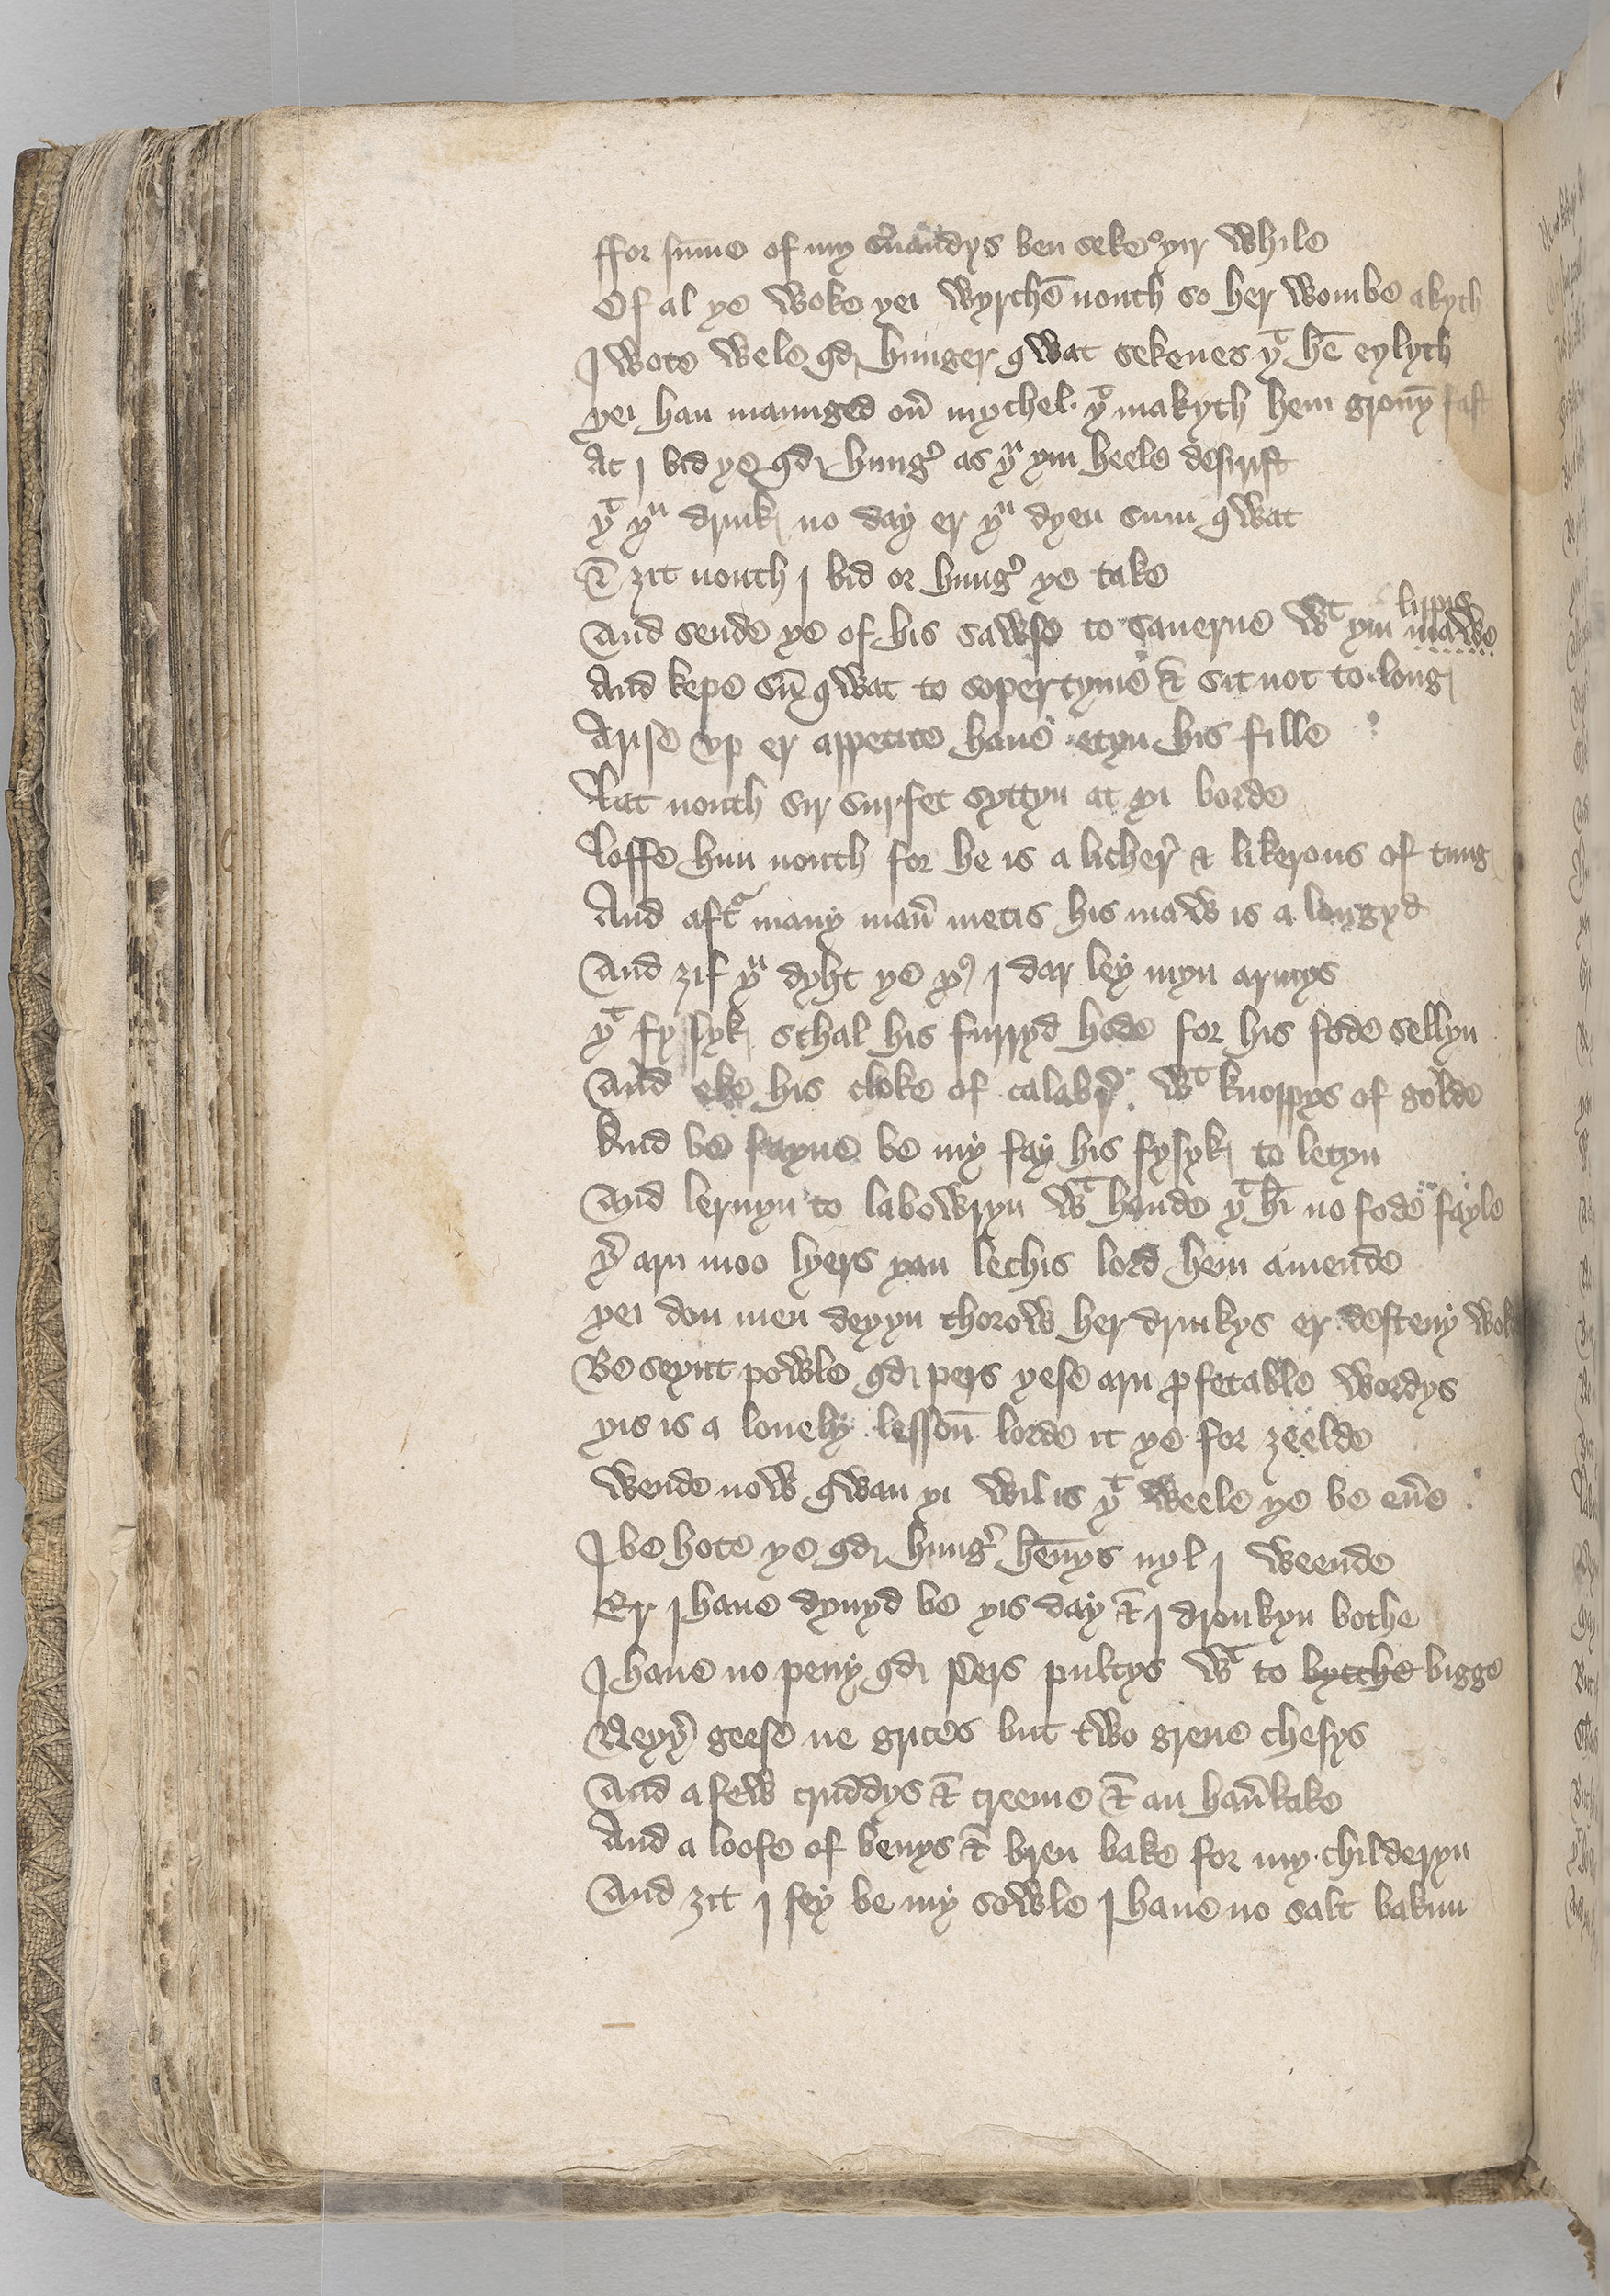 ffor su̅me of my s'uau̅dys ben seke oyir while
Of al ye woke yei wyrche̅ nouth so her wombe akyth
I wote wele qd hunger qwat sekenes yt he̅ eylyth
yei han maunged ou' mychel yt makyth hem grony̅ fast
Ac I bid ye qd hung' as yu yin heele desirist
yt yu drink no day er yu dyen sum qwat
Et zit nouth I bid or hung' ye take
And sende ye of his sawse to sauerne wt yin mawe lippis
And kepe su̅ qwat to sopertyme & sit not to long
Arise vp er appetite haue etyn his fille
Lat nouth sir surfet syttyn at yi borde
Loffe him nouth for he is a licher' & likerous of tung
And aftr many man' metis his maw is a longyd
And zif yu dyht ye yus I dar ley myn armys
yt fysyk schal his furryd hode for his fode sellyn
And eke his cloke of calabr' wt knoppys of golde
And be fayne be my fay his fysyk to letyn
And lernyn to labowryn wt hande yt hi̅ no fode fayle
y' arn moo lyers yan lechis lord hem amende
yei don men deyyn thorow her drinkys er desteny wold
Be seynt powle qd pers yese arn pfetable wordys
yis is a louely lesson̅ lorde it ye for zeelde
Wende now qwan yi wil is yt weele ye be eu'e
I be hote ye qd hung' he̅nys nyl I weende
Er I haue dynyd be yis day & I dronkyn bothe
I haue no peny qd Pers pultys wt to bytche bigge
Neyy' geese ne grices but two grene chesys
And a few cruddys & creeme & an hau'kake
And a loofe of benys & bren bake for my childeryn
And zit I sey be my sowle I haue no salt bakun